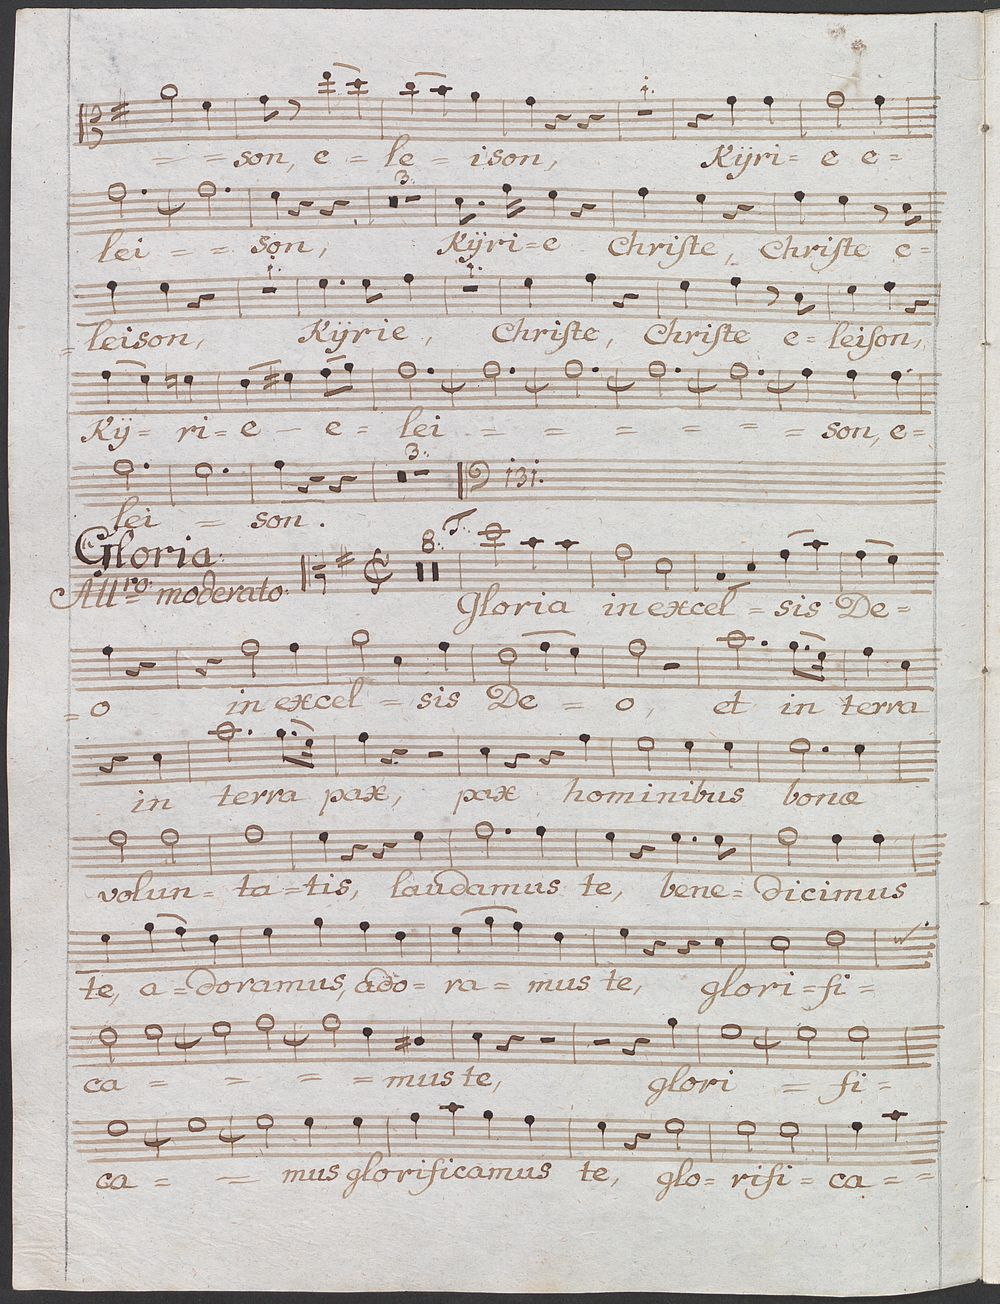 = = son, e = le = ison, Kÿri = e e =
lei = = son, Kÿri = e Chriſte, Chriſte e =
1. 1.
3.
= leison, Kÿrie, Chriſte, Chriſte e = leiſon,
Kÿ = ri = e - e = lei = = = = = = = son, e =
3.
131.
lei = son.
Gloria.
8. T.
All:ro moderato.
Gloria in excel = sis De =
= o in excel = sis De = o, et in terra
in terra pax, pax hominibus bonæ
volun = ta = tis, laudamus te, bene = dicimus
te, a = doramus, ado = ra = mus te, glori = fi =
ca = = = = mus te, glori = fi =
ca = = mus glorificamus te, glo = rifi = ca = =